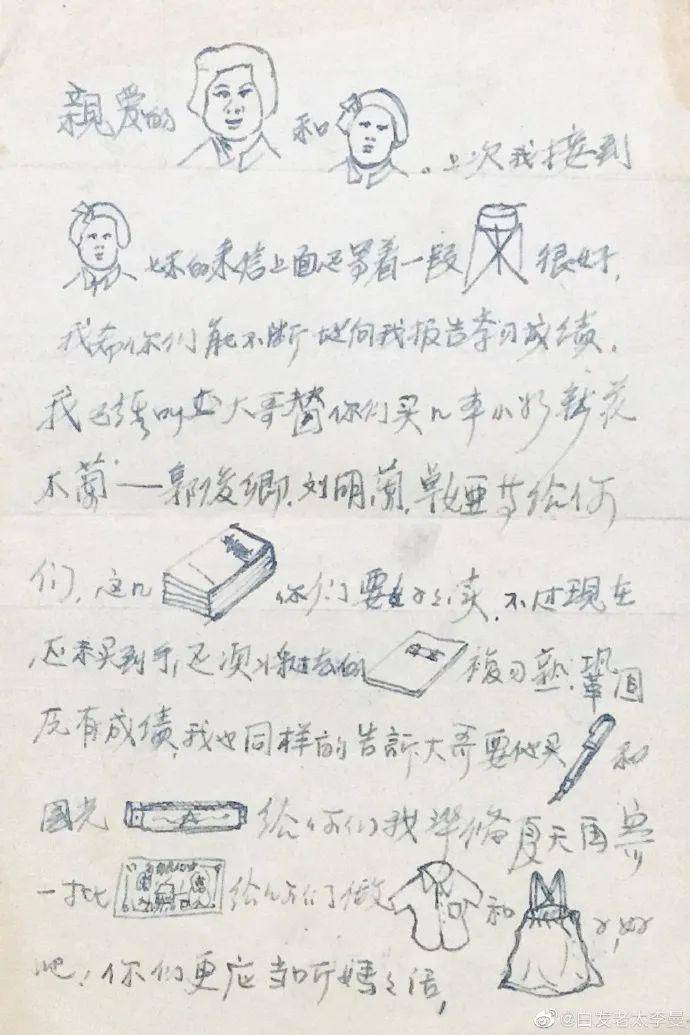 親爱的 和 。上次我接到
妹的来信上面还写着一段 很好,
我希你们能不断地向我报告学习成绩.
我已经叫 大哥替你们买几本小 花
木蘭——郭俊卿.刘明蘭. 等给你
们,这几 你们要好々读,不过现在
还未买到手,还须将过去的 複习熟,鞏固
原有成绩,我也同样的告訴大哥要他买 和
國光 给你们我準備夏天再寄
一批 给你们做 和 好
吧!你们更应当听媽々话,
@白发老太李曼